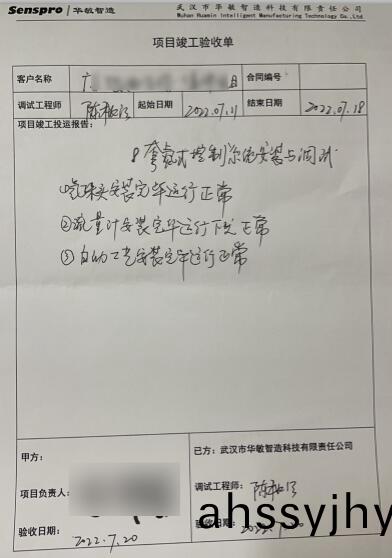 Senspro 华敏智造
武汉市华敏智造科技有限责任公司
Wuhan Huamin Intelligent Manufacturing Technology Co., Ltd.
项目竣工验收单
客户名称 广 合同编号
调试工程师 起始日期 2022.07.11 结束日期 2022.07.18
项目竣工投运报告:
8套 式控制系统安装与调试
安装完毕运行正常
②流量计安装完毕运行 正常
③自动 安装完毕运行正常
甲方:
已方:武汉市华敏智造科技有限责任公司
项目负责人:
调试工程师:
验收日期: 2022.7.20
验收日期:
ahssyjhy